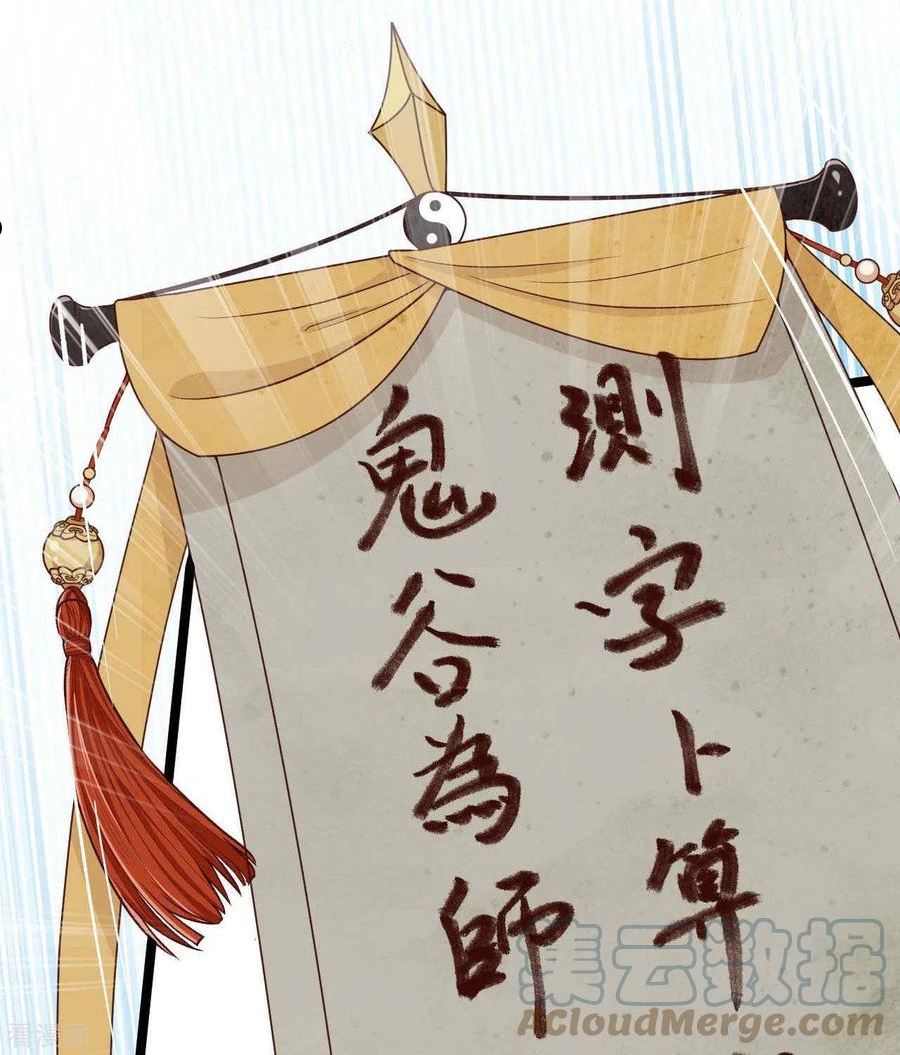 測字卜算
鬼谷為師
集云数据
ACloudMerge.com
看漫画